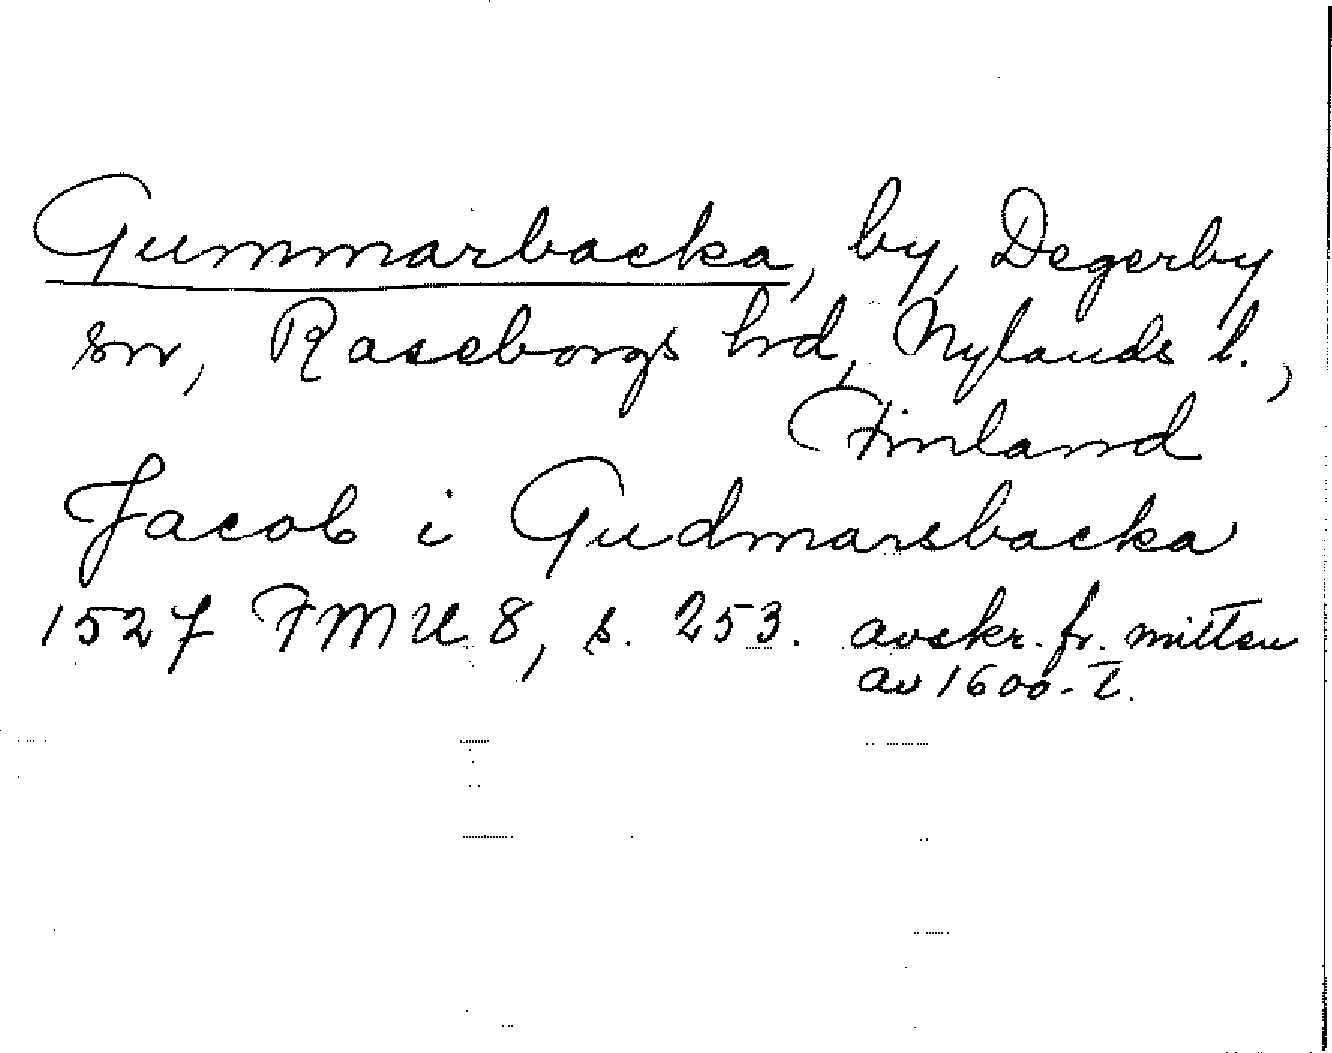 Gummarbacka, by, Degerby
sn, Raseborgs hrd, Nylands l.,
Finland
Jacob i Gudmarsbacka
1527 FMU 8, s. 253. avskr. fr. mitten
av 1600-t.